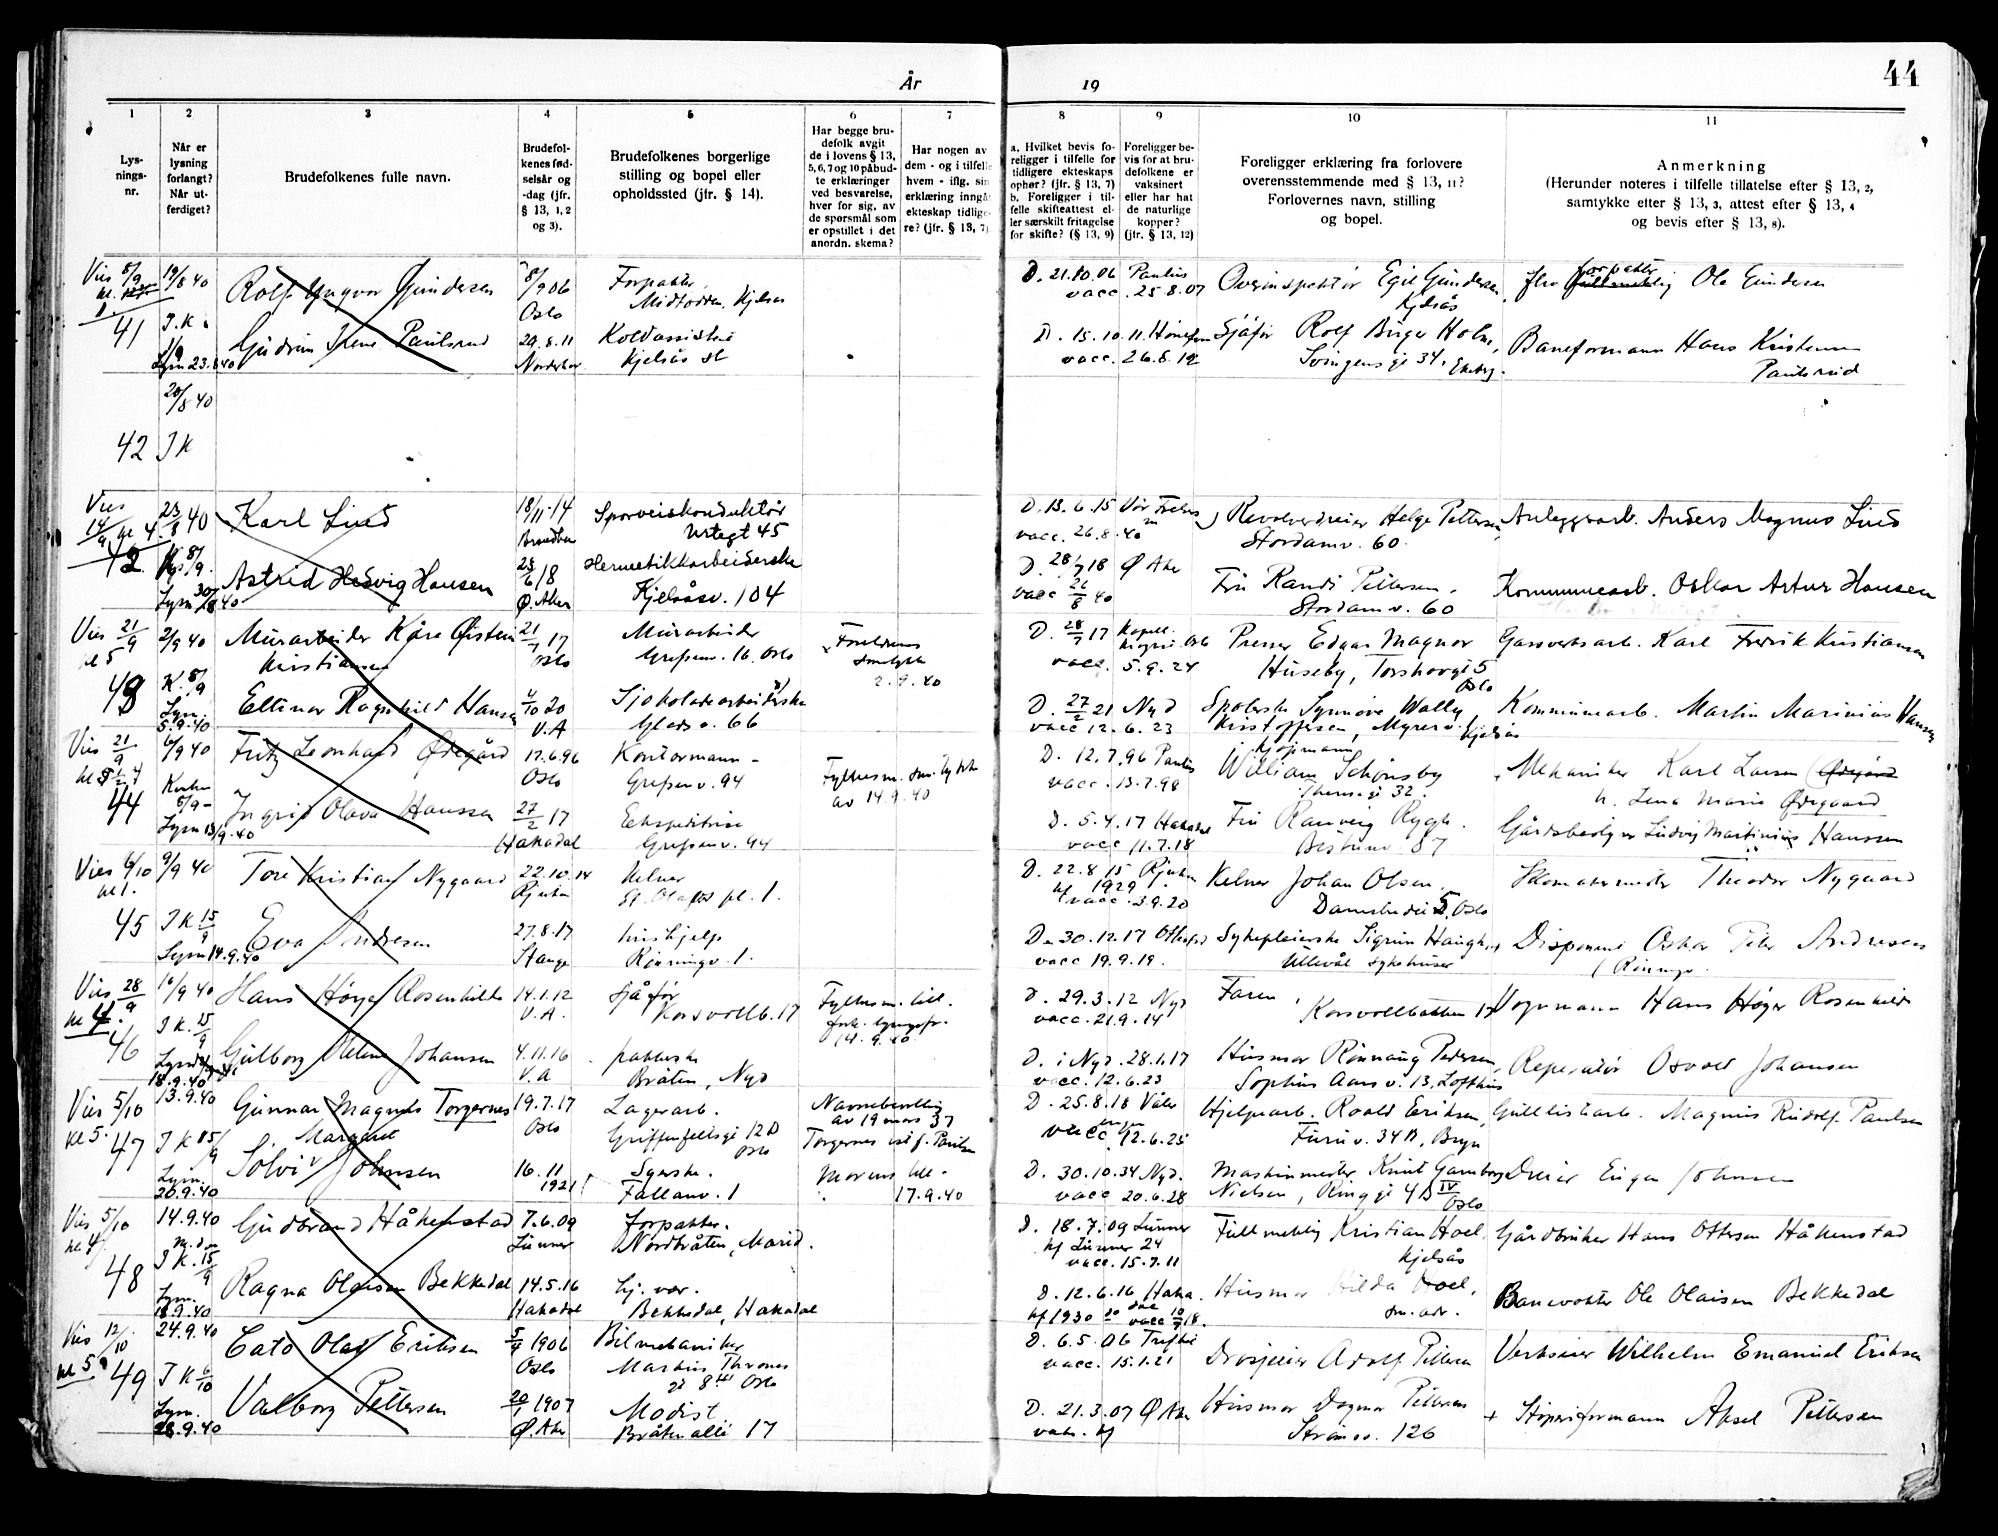 År
19
44
1
2
3
4
5
6
7
8
9
10
11
Lys-
nings-
nr.
Når er
lysning
forlangt?
Når ut-
ferdiget?
Brudefolkenes fulle navn.
Brudefol-
kenes fød-
selsår og
-dag (jfr.
§ 13, 1, 2
og 3).
Brudefolkenes borgerlige
stilling og bopel eller
opholdssted (jfr. § 14).
Har begge bru-
defolk avgit
de i lovens § 13,
5, 6, 7 og 10 påbud-
te erklæringer
ved besvarelse,
hver for sig, av
de spørsmål som
er opstillet i det
anordn. skema?
Har nogen av
dem - og i tilfelle
hvem - iflg. sin
erklæring inngå
ekteskap tidlige-
re? (jfr. § 13, 7)
a. Hvilket bevis fo-
religger i tilfelle for
tidligere ekteskaps
ophør? (jfr. § 13, 7)
b. Foreligger i til-
felle skifteattest el-
ler særskilt fritagelse
for skifte? (§ 13, 9)
Foreligger be-
vis for at bru-
defolkene er
vaksinert
eller har hat
de naturlige
kopper?
(jfr. § 13, 12)
Foreligger erklæring fra forlovere
overensstemmende med § 13, 11?
Forlovernes navn, stilling
og bopel.
Anmerkning
(Herunder noteres i tilfelle tillatelse efter § 13, 2,
samtykke efter § 13, 3, attest efter § 13, 4
og bevis efter § 13, 8).
Vies 8/9
19/8 40
Rolf Yngvar Gundersen
8/9 06
Oslo
Forpakter,
Midtodden, Kjelsås
D. 21.10.06 Paulus
vacc. 25.8.07
Overinspektør Egil Gundersen
Kjelsås
forpakter
Ole Gundersen
41
I.K.
1/9
Lysn 23.8.40
Gudrun Irene Paulsrud
29.8.11
Norderhov
Kjelsås st
D. 15.10.11. Hønefoss
vacc. 26.8.12
Sjåfør Rolf Birger Holm,
34, Ekeberg.
Baneformann Hans Kristensen
Paulsrud
20/8 40
42 I K
Vies
14/9 kl 4.
23/8 40
Karl Lind
18/11-14
Sporveiskonduktør
Urtegt 45
D. 13.6.15 Vår Frelsers
vacc. 26.8.40
Revolverdreier Helge Pettersen
Stordamv. 60.
Anleggsarb. Anders Magnus Lind
42
8/9.
Lysn 30/8 40
Astrid Hedvig Hansen
23/6 18
Ø. Aker
Hermetikkarbeiderske
Kjelsåsv. 104
D. 28/7 18 Ø Aker
vacc 21/8 40
Fru Randi Pettersen,
Stordamv. 60
Kommunearb. Oskar Artur Hansen
Vies 21/9
kl 5
2/9 40
Murarbeider Kåre Øistein
Kristiansen
21/1 17
Oslo
Murarbeider
Grefsenv. 16, Oslo
Foreldrenes
samtykke
2.9.40
D. 28/7 17
Oslo
vacc. 5.9.24
Presser Edgar Magnor
Huseby, Torshovgt 5
Oslo
Gassverksarb. Karl Fredrik Kristiansen
43
K. 8/9
Lysn.
5.9.40
Ellinor Ragnhild Hansen
4/10 20
V.A
Sjokoladearbeiderske
Gladsv. 66
D. 27/2 21 Nyd
vacc 12.6.23
Spolerske Synnøve Wally
Kristoffersen, Myrerv. Kjelsås
Kommunearb. Martin Marinius Hansen
Vies 21/9
6/9 40
Fritz Leonhard Ødegård
17.6.96
Oslo
Kontormann -
Grefsenv. 94
Fylkesm. samtykke
av 14.9.40
D. 12.7.96 Paulus
vacc. 13.7.98
kjøpmann
William Schønsby
Theresgt 32.
Mekaniker Karl Larsen (Ødegård
h. Lena Marie Ødegaard
44
8/9-
Lysn 13/9.40
Ingrid Olava Hanssen
27/2 17
Hakadal
Ekspeditrise
Grefsenv. 94
D. 5.4.17 Hakadal
vacc 11.7.18
Fru Ranveig Rygh.
Bestumv. 87
Gårdsbestyrer Ludvig Martinius Hanssen
Vies 6/10
kl 1.
9/9 40
Tore Kristian Nygaard
22.10.14
Rjukan
Kelner
St. Olafs pl. 1.
D. 22.8.15 Rjukan
kf 1929
vacc. 3.9.20
Kelner Johan Olsen
5, Oslo
Skomakermester Theodor Nygaard
45
I K 15/9
Lysn 14.9.40
Eva Andresen
27.8.17
Stange
hushjelp
Rønningv. 1.
D. 30.12.17 Ottestad
vacc 19.9.19.
Sykepleierske Sigrun Haugh,
Ullevål sykehuser
Disponent Oskar Peter Andresen
/ Rønningv.
Vies 28/9
kl 4.
10/9 40
Hans Høyer Rosenkilde
14.1.12
V.A.
Sjåfør
Korsvollb. 17
Fylkesm. till.
14.9.40
D. 29.3.12 Nyd
vacc. 21.9.14
Faren,
Korsvollbakken 17
Vognmann Hans Høyer Rosenkilde
46
I K. 15/9
18.9.40
Gulborg Helene Johansen
4.11.16
V.A
pakkerske
Bråten, Nyd
D. i Nyd. 28.1.17
vacc. 12.6.23
Husmor Rønnaug Pedersen,
Sophus Aars v. 13, Lofthus
Reparatør Osvald Johansen
Vies 5/10
kl 5.
13.9.40
Gunnar Magnus Torgernes
19.7.17
Oslo
Lagerarb.
Griffenfeldtsgt 12 D
Oslo
Navnebevilling
av 19 mars 37
Torgernes ist. f. Paulsen
D. 25.8.18 Våler
vacc 12.6.25
Hjelpearb. Roald Eriksen,
Furuv. 34 B, Bryn
Gullistarb. Magnus Rudolf Paulsen
47
I K 15/9
Lysn.
20.9.40
Margaret
Solvi Johnsen
16.11
1921
Syerske.
Fallanv. 1
Morens till-
17.9.40
D. 30.10.34 Nyd.
vacc 20.6.28
Maskinmester Knut Gamborg
Nielsen, Ringgt 4 B IV
Oslo
Dreier Einar Johnsen
Vies 5/10
kl 4
14.9.40
Gudbrand Håkenstad
7.6.09
Lunner
Forpakter.
Nordbråten, Marid.
D. 18.7.09 Lunner
kf Lunner 24
vacc. 15.7.11
Fullmektig Kristian Hoel
Kjelsås
Gårdbruker Hans Ottersen Håkenstad
48
I K. 15/9
Lysn.
18.9.40
Ragna Olaisen Bekkedal
14.5.16
Hakadal
hj. vær.
Bekkedal, Hakadal
D. 12.6.16 Haka
kf 1930 dal
vacc 10/9 18.
Husmor Hilda Hoel,
sm. adr.
Banevokter Ole Olaisen Bekkedal
Vies 12/10
kl 5.
24.9.40
Cato Olaf Eriksen
5/9 1906
Oslo
Bilmekaniker
Markus Thranes
gt 8 III Oslo
D. 6.5.06 Trefold
vacc. 15.1.21
Drosjeeier Adolf Pettersen
Verkseier Wilhelm Emanuel Eriksen
49
I K 6/10
Lysn.
28.9.40
Valborg Pettersen
20/1 1907
Ø. Aker
Modist
Bråten allé 17
D. 21.3.07 Ø Aker
Husmor Dagmar Pettersen
Strømsv. 126
+ Støperiformann Aksel Pettersen